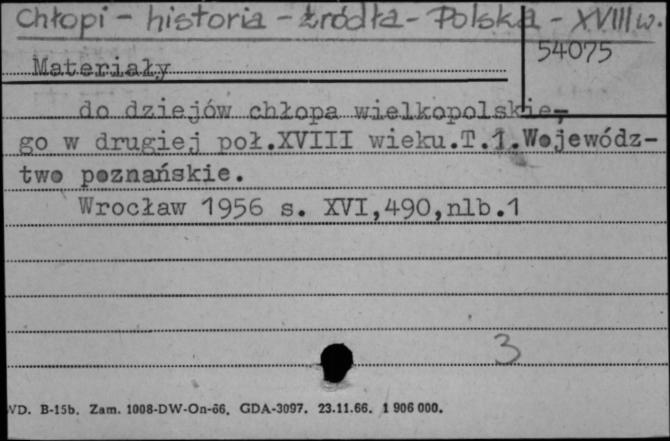 Chłopi - historia - źródła - Polska - XVIII w.
54075
Materiały
do dziejów chłopa wielkopolskie-
go w drugiej poł.XVIII wieku.T.1.Wojewódz-
two poznańskie.
Wrocław 1956 s. XVI,490,nlb.1
3
WD. B-15b. Zam. 1008-DW-On-66. GDA-3097. 23.11.66. 1 906 000.